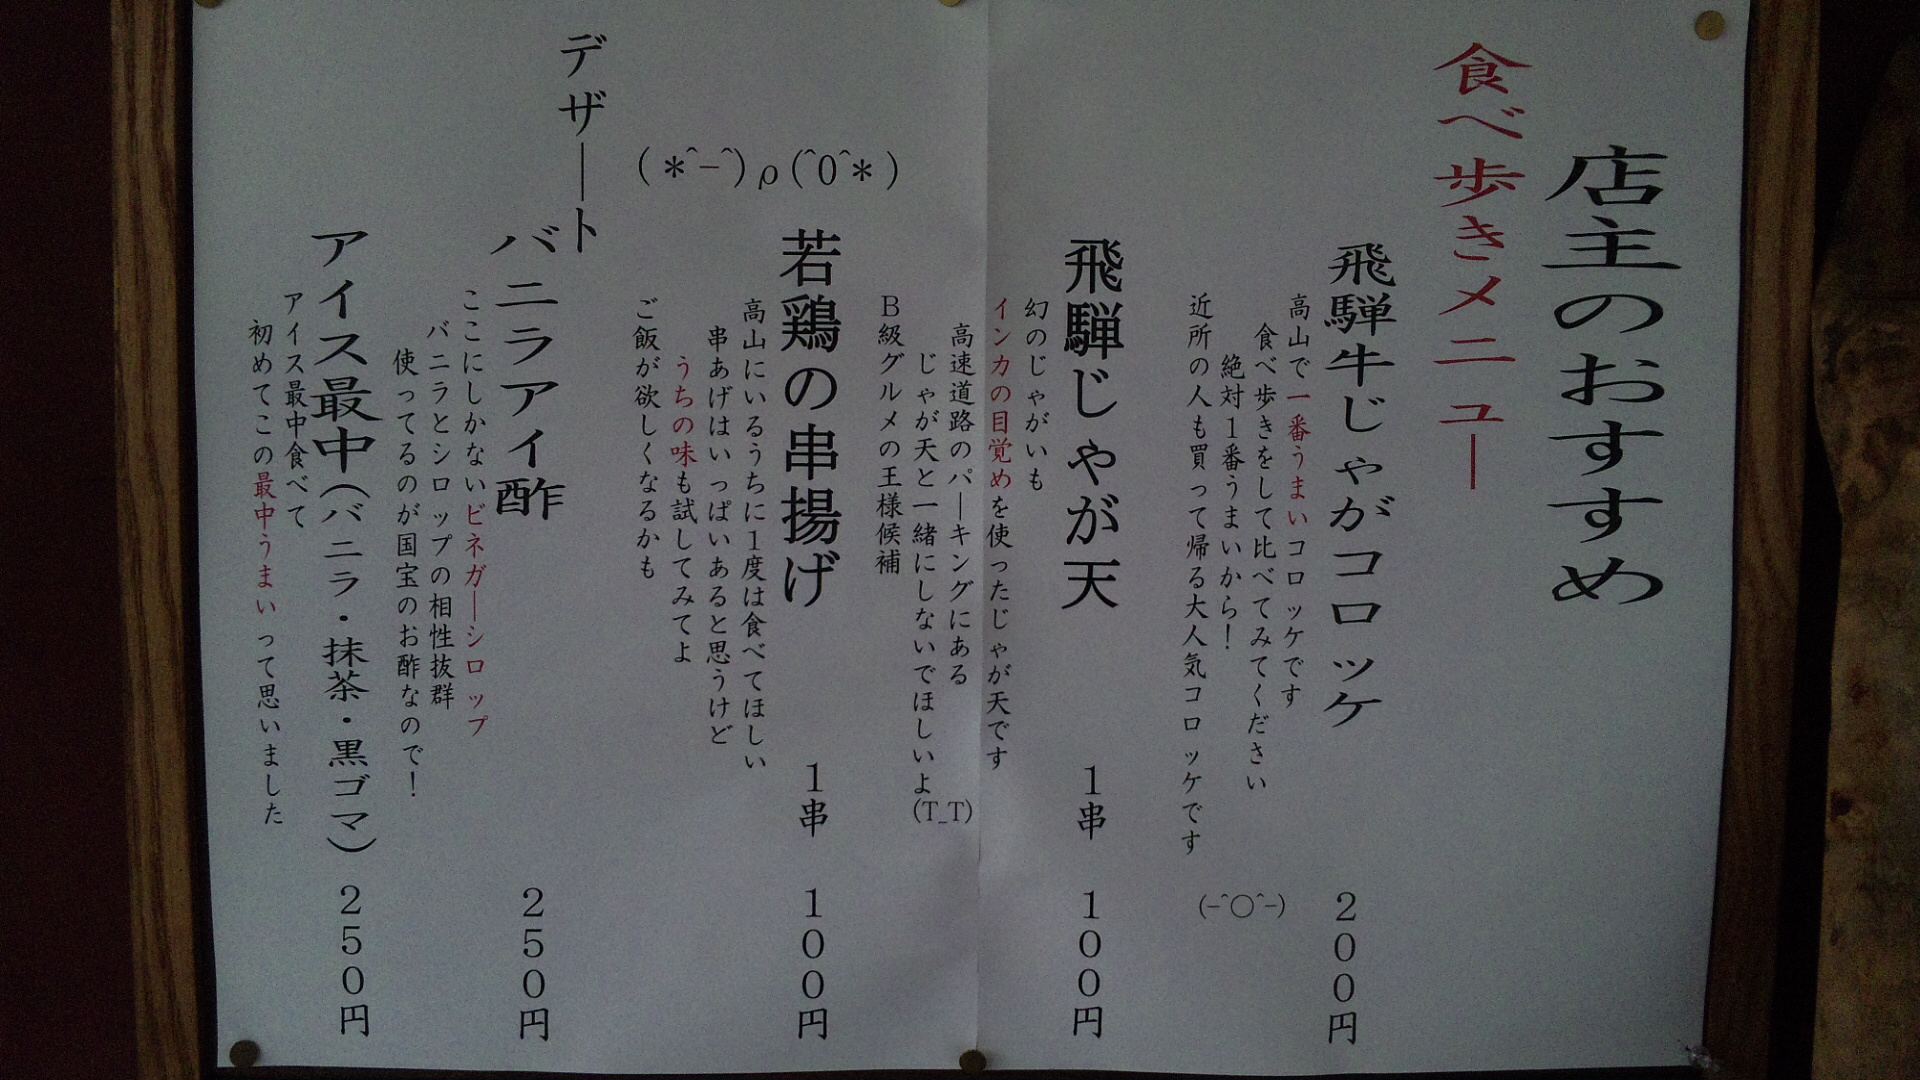 店主のおすすめ
食べ歩きメニュー
飛騨牛じゃがコロッケ 200円
高山で一番うまいコロッケです
食べ歩きをして比べてみてください
絶対1番うまいから!
近所の人も買って帰る大人気コロッケです
(-^○^-)
飛騨じゃが天 1串 100円
幻のじゃがいも
インカの目覚めを使ったじゃが天です
高速道路のパーキングにある
じゃが天と一緒にしないでほしいよ(T_T)
B級グルメの王様候補
若鶏の串揚げ 1串 100円
高山にいるうちに1度は食べてほしい
串あげはいっぱいあると思うけど
うちの味も試してみてよ
ご飯が欲しくなるかも
(*^-^)ρ(^0^*)
デザート
バニラアイ酢 250円
ここにしかないビネガーシロップ
バニラとシロップの相性抜群
使ってるのが国宝のお酢なので!
アイス最中(バニラ・抹茶・黒ゴマ) 250円
アイス最中食べて
初めてこの最中うまいって思いました